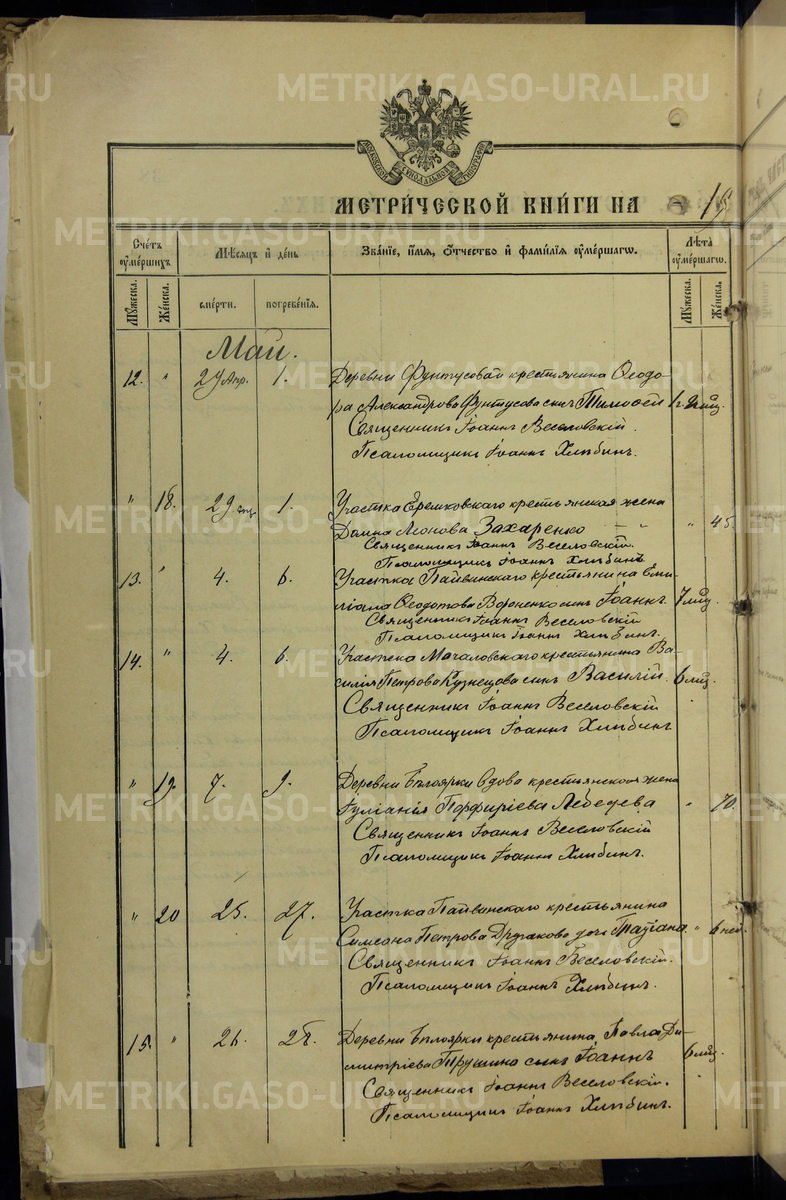 METRIKI.GASO-URAL.RU
МОСКОВСКОЙ СѴНОДАЛЬНОЙ ТИПОГРАФІИ
МЕТРИЧЕСКОЙ КНИГИ НА 19
Счетъ умершихъ
Мѣсяцъ и день
Званіе, имя, отчество и фамилія умершаго.
Лѣта умершаго.
Мужеска.
Женска.
смерти.
погребенія.
Мужеска.
Женска.
Май.
12. " 29 Апр. 1. Деревни Фунтусовай крестьянина Ѳеодо-
ра Александрова Фунтусова сынъ Тимоѳей 1 г. 2 мѣс.
Священникъ Іоаннъ Веселовскій.
Псаломщикъ Іоаннъ Хлыбинъ.
" 18. 29 1. Участка Еремковскаго крестьянская жена
Домна Леонова Захаренко " 45.
Священникъ Іоаннъ Веселовскій.
Псаломщикъ Іоаннъ Хлыбинъ
13. " 4. 6. Участка Пайвинскаго крестьянина Еми-
ліана Ѳеодотова Вороненко сынъ Іоаннъ. 7 мѣс.
Священникъ Іоаннъ Веселовскій
Псаломщикъ Іоаннъ Хлыбинъ.
14. " 4. 6. Участка Мочаловскаго крестьянина Ва-
силія Петрова Кузнецова сынъ Василій. 6 мѣс.
Священникъ Іоаннъ Веселовскій
Псаломщикъ Іоаннъ Хлыбинъ
" 19. 7. 9. Деревни Бѣлоярки вдова крестьянская жена
Іуліанія Порфиріева Лебедева " 70.
Священникъ Іоаннъ Веселовскій
Псаломщикъ Іоаннъ Хлыбинъ.
" 20 25. 27. Участка Пайвинскаго крестьянина
Симеона Петрова дочь Таѳіана " 6 нед.
Священникъ Іоаннъ Веселовскій.
Псаломщикъ Іоаннъ Хлыбинъ.
15. " 26. 28. Деревни Бѣлоярки крестьянина Павла Ди-
митріева Трушина сынъ Іоаннъ 6 мѣс.
Священникъ Іоаннъ Веселовскій.
Псаломщикъ Іоаннъ Хлыбинъ.